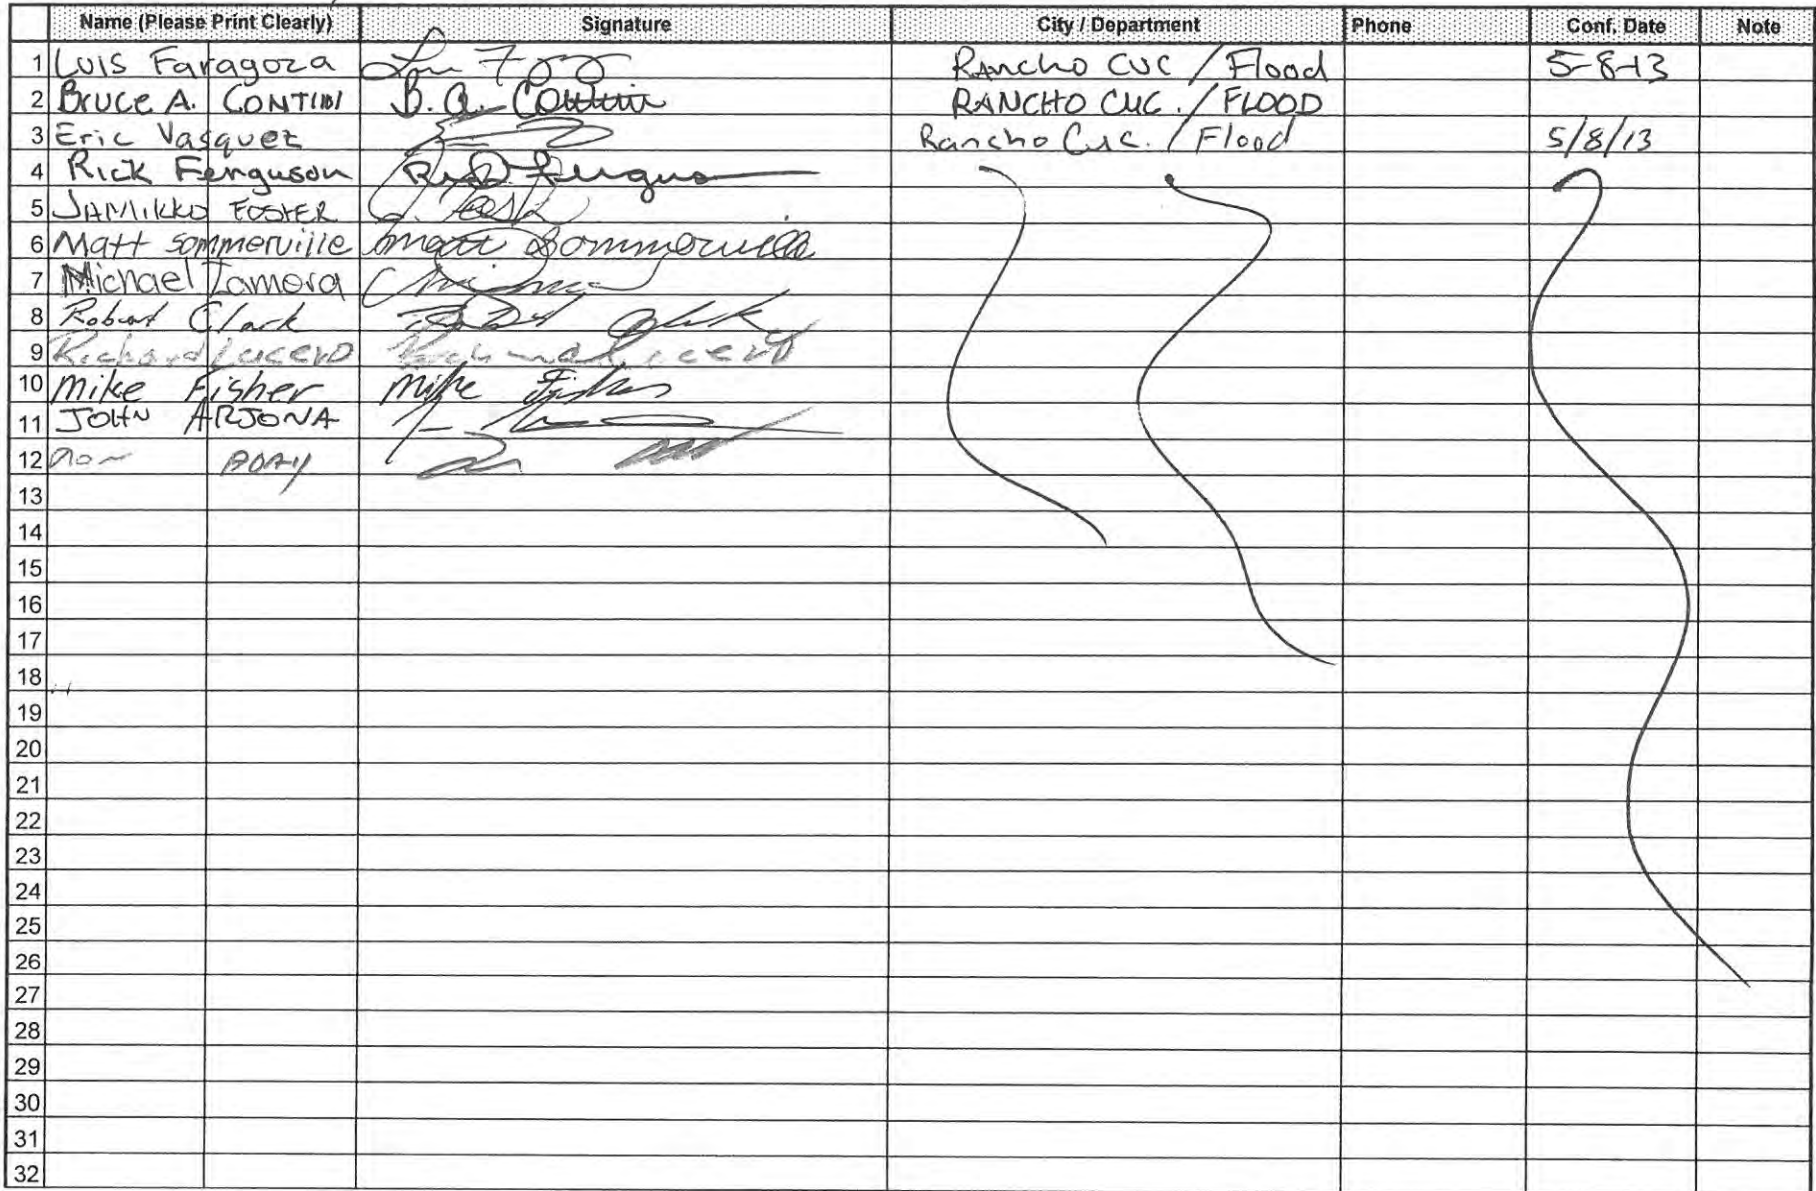 Name (Please Print Clearly) Signature City / Department Phone Conf. Date Note
1 Luis Faragoza Rancho CUC / Flood 5-8-13
2 Bruce A. CONTINI B. A. Contini RANCHO CUC. / FLOOD
3 Eric Vasquez Rancho Cuc. / Flood 5/8/13
4 Rick Ferguson
5 JAMIKKO FOSTER
6 Matt Sommerville Matt Sommerville
7 Michael Zamora
8 Robert Clark
9 Richard Lucero Richard Lucero
10 Mike Fisher Mike Fisher
11 JOHN ARJONA
12
13
14
15
16
17
18
19
20
21
22
23
24
25
26
27
28
29
30
31
32